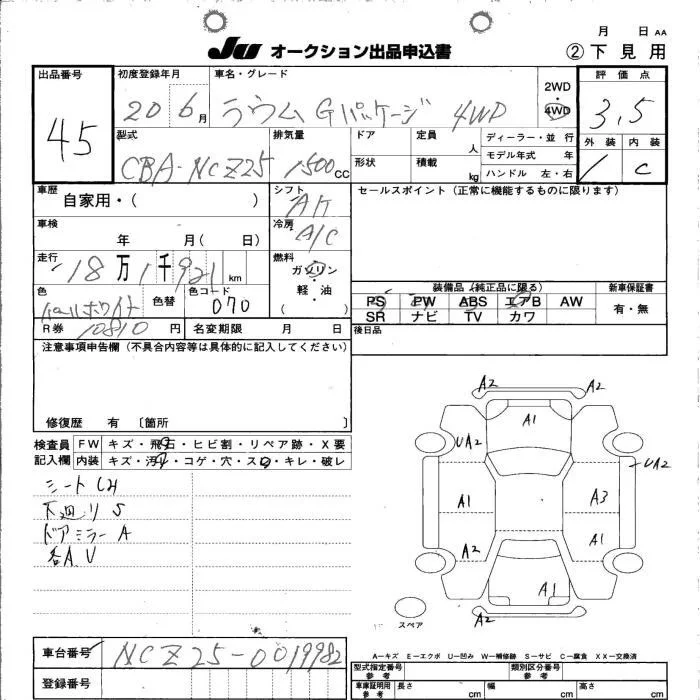 月 日 AA
JU オークション出品申込書 ②下見用
出品番号 初度登録年月 車名・グレード 2WD・4WD 評価点
45 20 6月 ラウム Gパッケージ 4WD 3.5
型式 排気量 ドア 定員 人 ディーラー・並行 外装 内装
CBA-NCZ25 1500cc 形状 積載 kg モデル年式 年 C
ハンドル 左・右
車歴 自家用・( ) シフト AT セールスポイント(正常に機能するものに限ります)
車検 年 月( 日) 冷房 A/C
走行 18万1千921km 燃料 ガソリン・軽油・( )
装備品(純正品に限る) 新車保証書
色 パールホワイト 色替 色コード 070 PS PW ABS エアB AW 有・無
SR ナビ TV カワ
R券 10810円 名変期限 月 日 後日品
注意事項申告欄(不具合内容等は具体的に記入してください)
修復歴 有〔箇所 〕
検査員 FW キズ・飛石・ヒビ割・リペア跡・X要
記入欄 内装 キズ・汚れ・コゲ・穴・スレ・キレ・破レ
シート
下廻りS
ドアミラーA
各A.U
A2 A2
A1
UA2 UA2
A1 A3
A2 A1
A1
A2 A2
スペア
A-キズ E-エクボ U-凹み W-補修跡 S-サビ C-腐食 XX-交換済
車台番号 NCZ25-0019982
型式指定番号 参考 類別区分番号 参考
登録番号
車庫証明用 参考 長さ cm 幅 cm 高さ cm